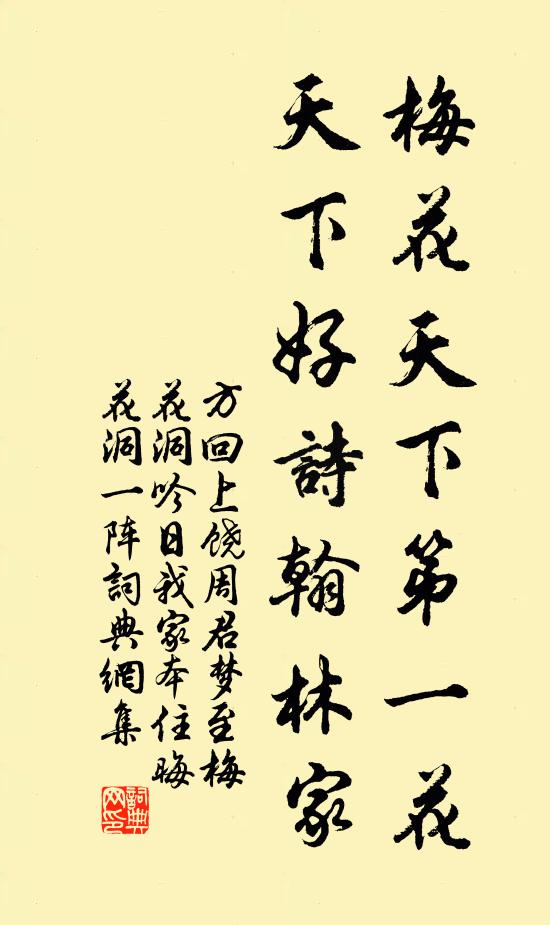 梅花天下第一花
天下好詩翰林家
方回上饶周君梦至梅
花洞吟日我家本住晦
花洞一阵詞典網集
詞典
网印